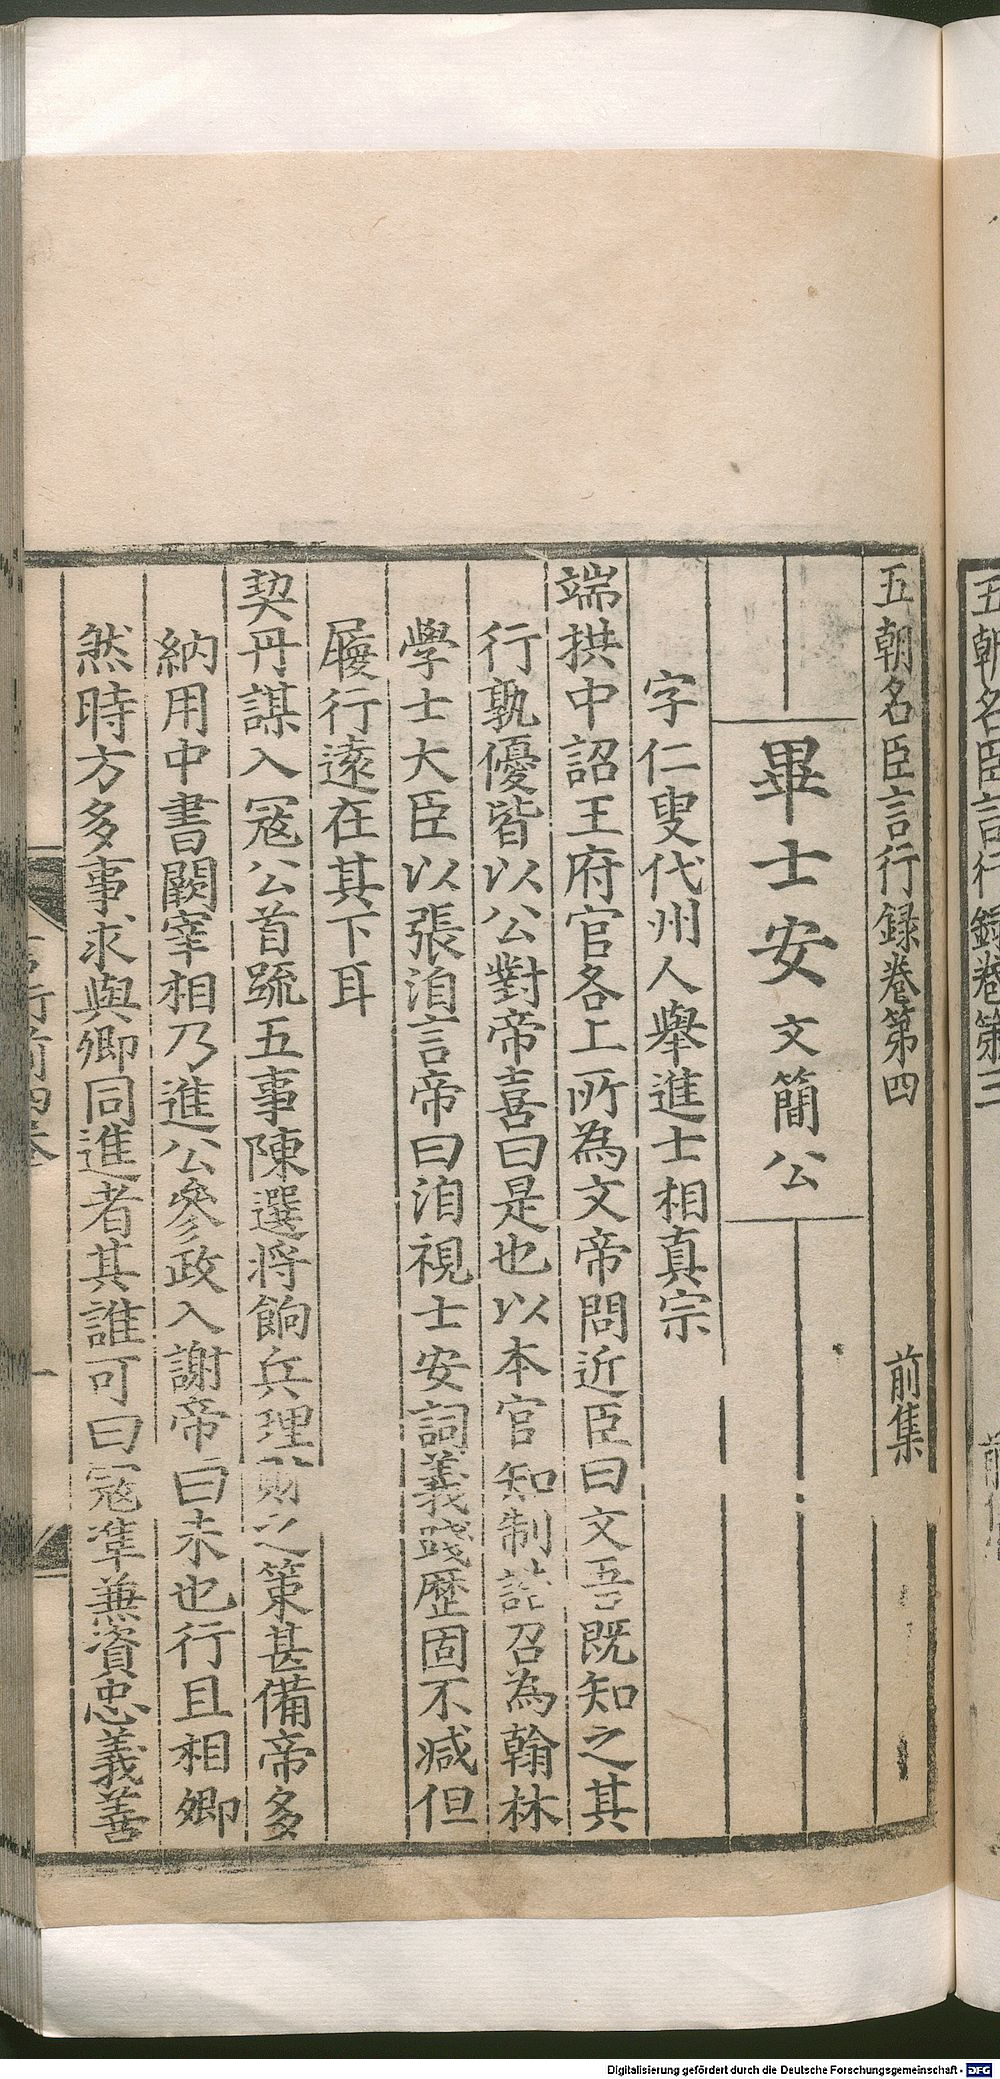 五朝名臣言行録卷第四 前集
畢士安 文簡公
字仁叟代州人舉進士相真宗
端拱中詔王府官各上所為文帝問近臣曰文吾既知之其
行孰優皆以公對帝喜曰是也以本官知制誥召為翰林
學士大臣以張洎言帝曰洎視士安詞義踐歷固不減但
履行遠在其下耳
契丹謀入冦公首疏五事陳選将餉兵理財之策甚備帝多
納用中書闕宰相乃進公參政入謝帝曰未也行且相卿
然時方多事求與卿同進者其誰可曰冦準兼資忠義善
五朝名臣言行録卷第三
Digitalisierung gefördert durch die Deutsche Forschungsgemeinschaft - DFG